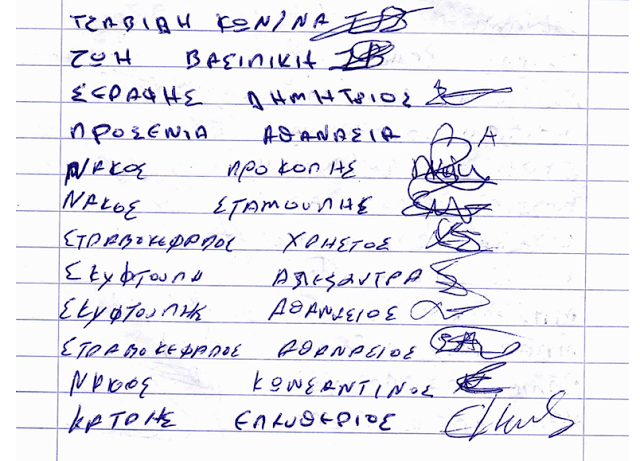 ΤΖΑΒΙΔΗ ΚΩΝ/ΝΑ
ΖΩΗ ΒΑΣΙΛΙΚΗ
ΣΕΡΑΦΗΣ ΔΗΜΗΤΡΙΟΣ
ΠΡΟΞΕΝΙΑ ΑΘΑΝΑΣΙΑ Α
ΝΑΚΟΣ ΠΡΟΚΟΠΗΣ
ΝΑΚΟΣ ΣΤΑΜΟΥΛΗΣ
ΣΤΡΑΒΟΚΕΦΑΛΟΣ ΧΡΗΣΤΟΣ
ΣΚΥΦΤΟΥΛΗ ΑΛΕΞΑΝΤΡΑ
ΣΚΥΦΤΟΥΛΗΣ ΑΘΑΝΑΣΙΟΣ
ΣΤΡΑΒΟΚΕΦΑΛΟΣ ΑΘΑΝΑΣΙΟΣ
ΝΑΚΟΣ ΚΩΝΣΑΝΤΙΝΟΣ
ΚΑΤΡΗΣ ΕΛΕΥΘΕΡΙΟΣ